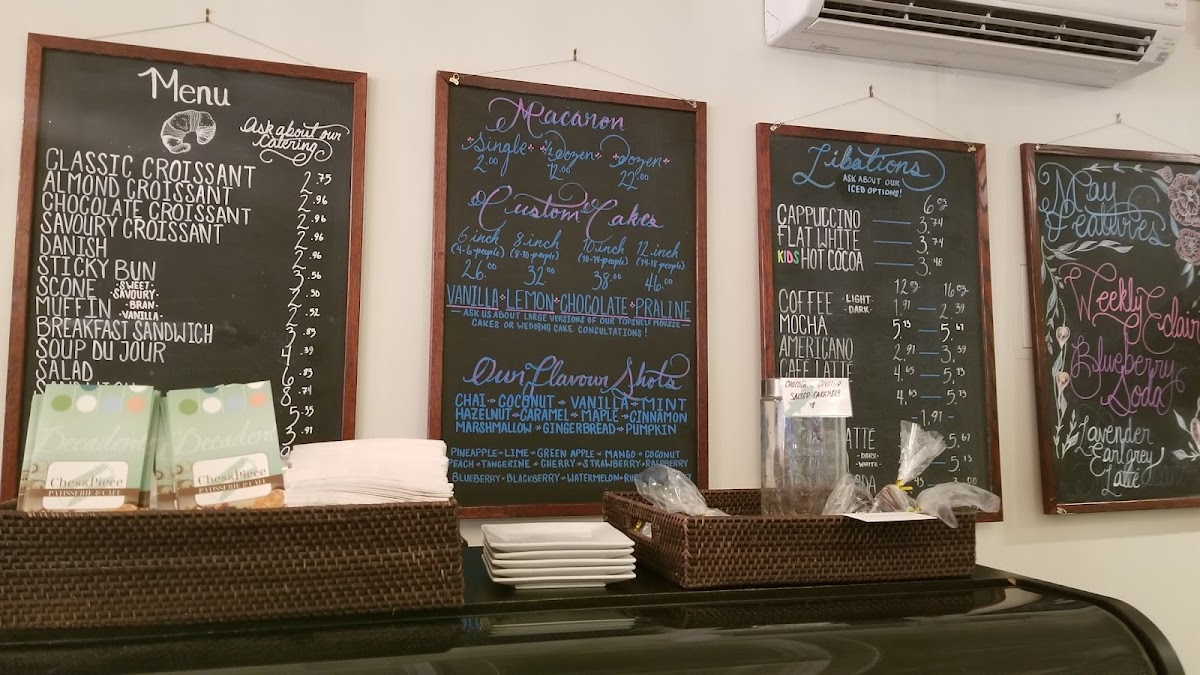 Menu
Ask about our
Catering
CLASSIC CROISSANT 2.75
ALMOND CROISSANT 2.96
CHOCOLATE CROISSANT 2.96
SAVOURY CROISSANT 2.96
DANISH 2.96
STICKY BUN 3.56
SCONE -SWEET- -SAVOURY-
MUFFIN -BRAN- -VANILLA-
BREAKFAST SANDWICH
SOUP DU JOUR
SALAD
Decadent
Decadent
ChessPiece
PATISSERIE & CAFE
ChessPiece
PATISSERIE & CAFE
Macaron
Single ½ Dozen Dozen
2.00 12.00 22.00
Custom Cakes
6 inch 8 inch 10 inch 12 inch
(4-6 people) (8-10 people) (10-14 people) (14-18 people)
26.00 32.00 38.00 46.00
VANILLA LEMON CHOCOLATE PRALINE
ASK US ABOUT LARGE VERSIONS OF OUR TOPSHELF MOUSSE
CAKES OR WEDDING CAKE CONSULTATIONS!
Our Flavour Shots
CHAI COCONUT VANILLA MINT
HAZELNUT CARAMEL MAPLE CINNAMON
MARSHMALLOW GINGERBREAD PUMPKIN
PINEAPPLE LIME GREEN APPLE MANGO COCONUT
PEACH TANGERINE CHERRY STRAWBERRY RASPBERRY
BLUEBERRY BLACKBERRY WATERMELON
Libations
ASK ABOUT OUR
ICED OPTIONS!
6 oz
CAPPUCCINO — 3.74
FLAT WHITE — 3.74
KIDS HOT COCOA — 3.46
12 oz 16 oz
COFFEE -LIGHT- -DARK- 1.91 — 2.39
MOCHA 5.13 — 5.61
AMERICANO 2.91 — 3.39
CAFE LATTE
CHOCOLATE COVERED
SALTED CARAMELS
LATTE
-DARK-
-WHITE-
May
Features
Weekly Eclair
Blueberry
Soda
Lavender
Earl grey
Latte